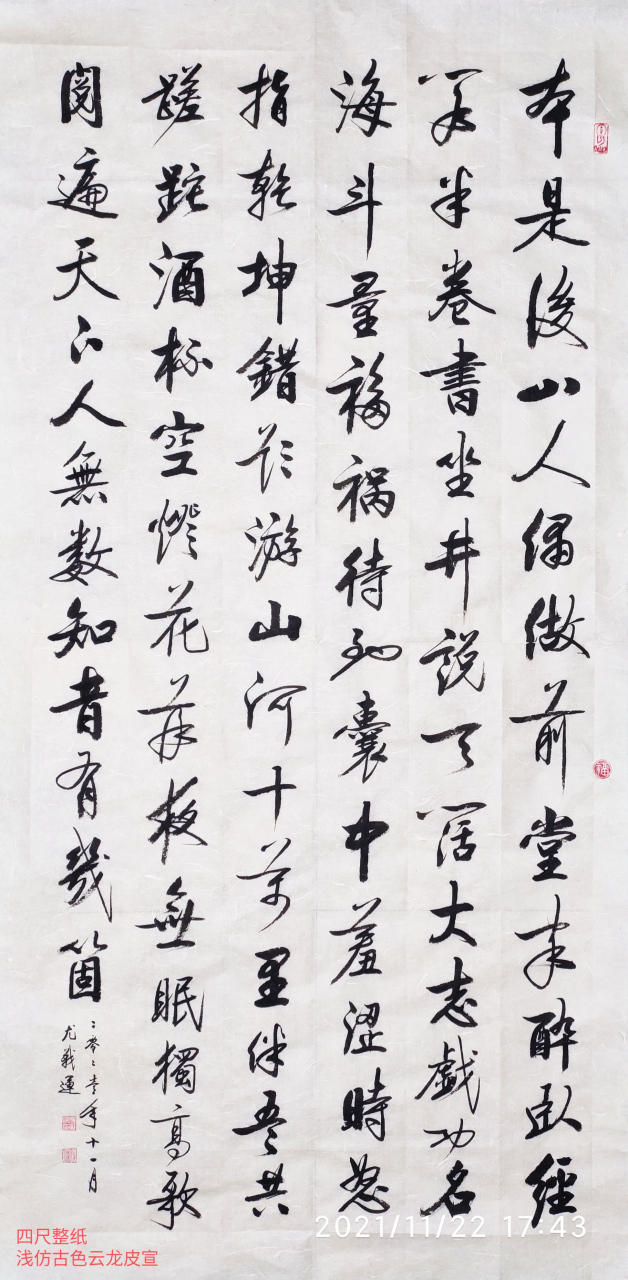 本是後山人偶做前堂客醉臥經
閣半卷書坐井說天闊大志戲功名
海斗量福禍待到囊中羞澀時怒
指乾坤錯欲游山河十萬里伴吾共
蹉跎酒杯空燈花落夜無眠獨高歌
閱遍天下人無數知音有幾箇
二零二壹年十一月
尤 運
2021/11/22 17:43
四尺整纸
浅仿古色云龙皮宣